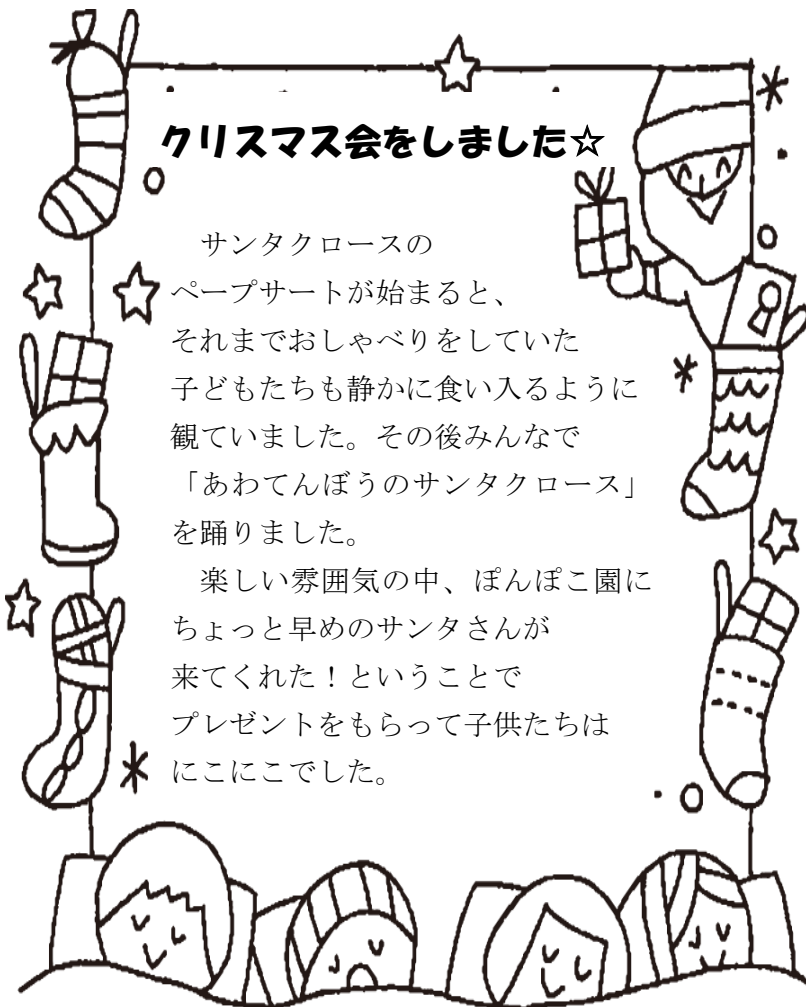 クリスマス会をしました☆
　サンタクロースの
ペープサートが始まると、
それまでおしゃべりをしていた
子どもたちも静かに食い入るように
観ていました。その後みんなで
「あわてんぼうのサンタクロース」
を踊りました。
　楽しい雰囲気の中、ぽんぽこ園に
ちょっと早めのサンタさんが
来てくれた！ということで
プレゼントをもらって子供たちは
にこにこでした。